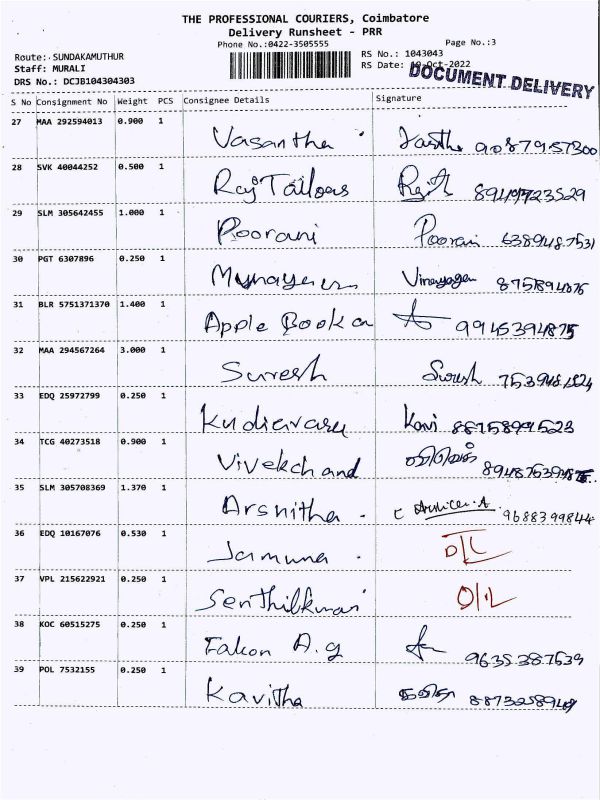 THE PROFESSIONAL COURIERS, Coimbatore
Delivery Runsheet - PRR
Phone No.:0422-3505555
Page No.:3
Route: SUNDAKAMUTHUR
RS No.: 1043043
Staff: MURALI
RS Date: 10-Oct-2022
DRS No.: DCJB104304303
DOCUMENT DELIVERY
S No Consignment No Weight PCS Consignee Details Signature
27 MAA 292594013 0.900 1 Vasantha
28 SVK 40044252 0.500 1 Raj Tailors
29 SLM 305642455 1.000 1 Poorani Poorani 6389487531
30 PGT 6307896 0.250 1 Vinayagan
31 BLR 5751371370 1.400 1 Apple Book 9945394875
32 MAA 294567264 3.000 1 Suresh
33 EDQ 25972799 0.250 1 Kudiarasu Kavi 8875899523
34 TCG 40273518 0.900 1 Vivekchand
35 SLM 305708369 1.370 1 Arshitha . 9688399844
36 EDQ 10167076 0.530 1 Jamuna . O/L
37 VPL 215622921 0.250 1 Senthilkumar O/L
38 KOC 60515275 0.250 1 Falcon A.g 9635387539
39 POL 7532155 0.250 1 Kavitha